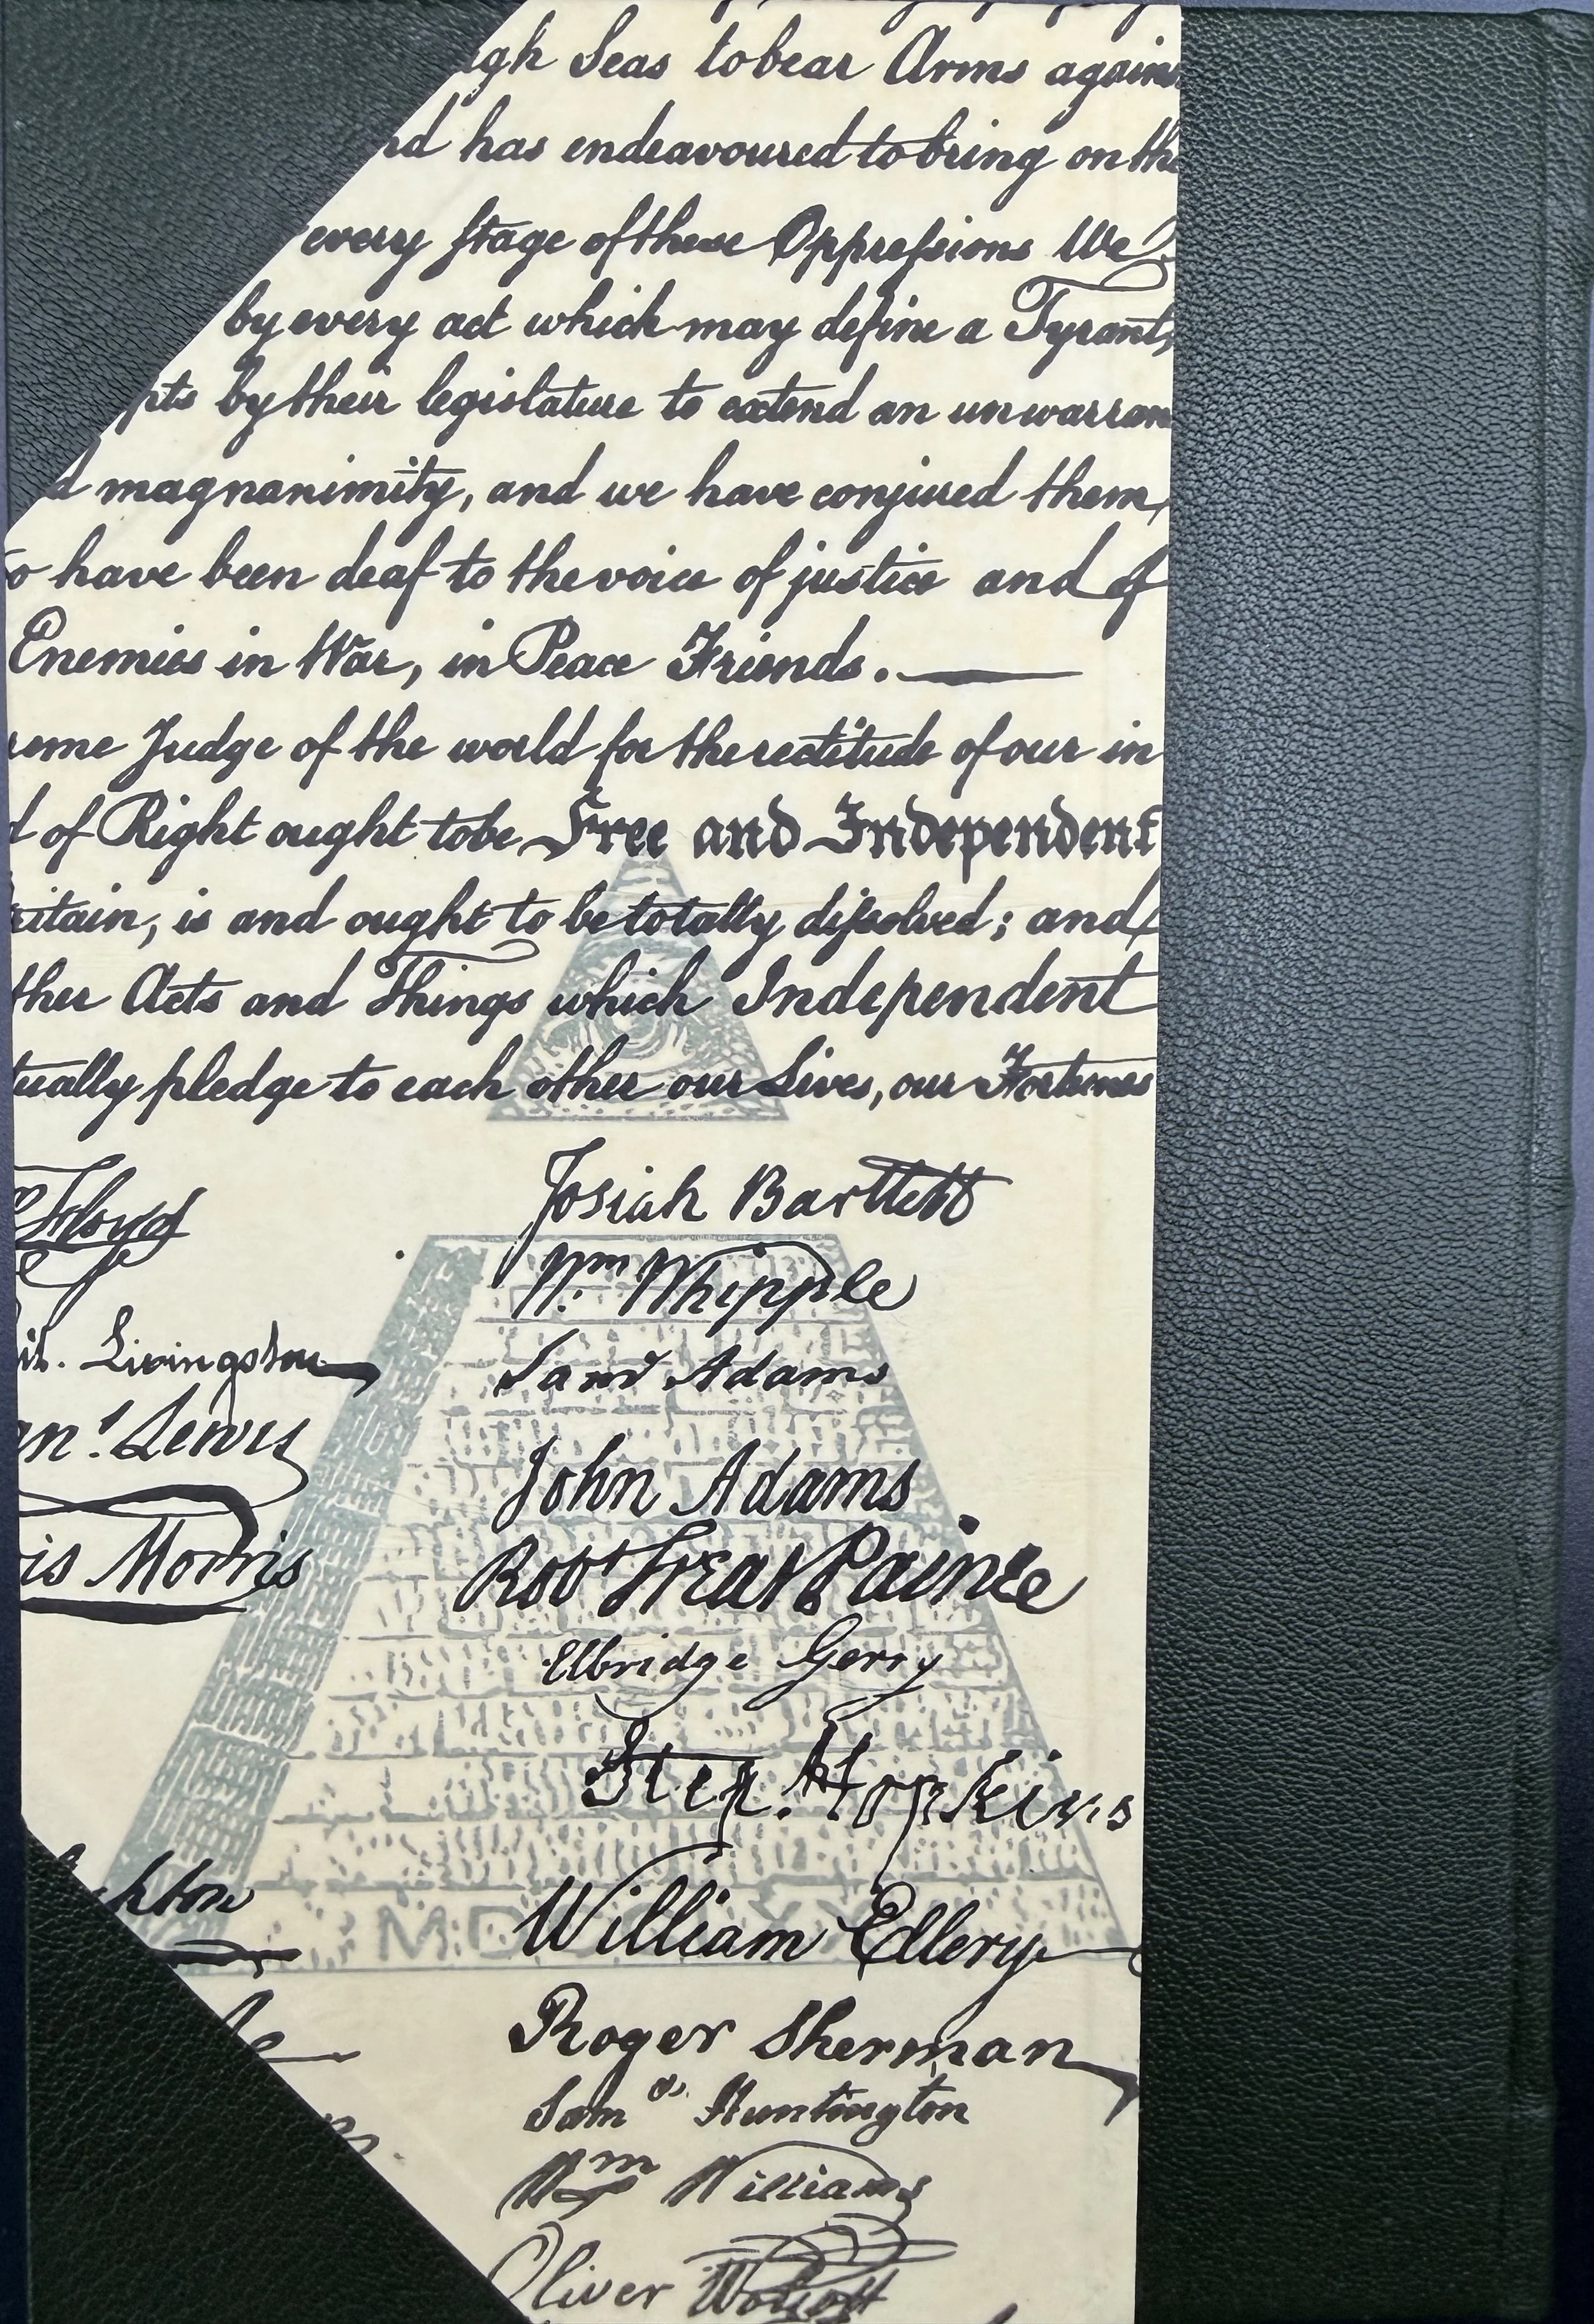 gh Seas to bear Arms agains
nd has endeavoured to bring on the
every stage of these Oppressions We
by every act which may define a Tyrant,
pts by their legislature to extend an unwarran
d magnanimity, and we have conjured them
o have been deaf to the voice of justice and of
Enemies in War, in Peace Friends.
reme Judge of the world for the rectitude of our in
d of Right ought to be Free and Independent
ritain, is and ought to be totally dissolved; and
ther Acts and Things which Independent
tually pledge to each other our Lives, our Fortunes
Floyd
il. Livingston
an! Lewis
is Morris
kton
Josiah Bartlett
Wm Whipple
Saml Adams
John Adams
Robt Treat Paine
Elbridge Gerry
Step. Hopkins
William Ellery
Roger Sherman
Sam el Huntington
Wm Williams
Oliver Wolcott